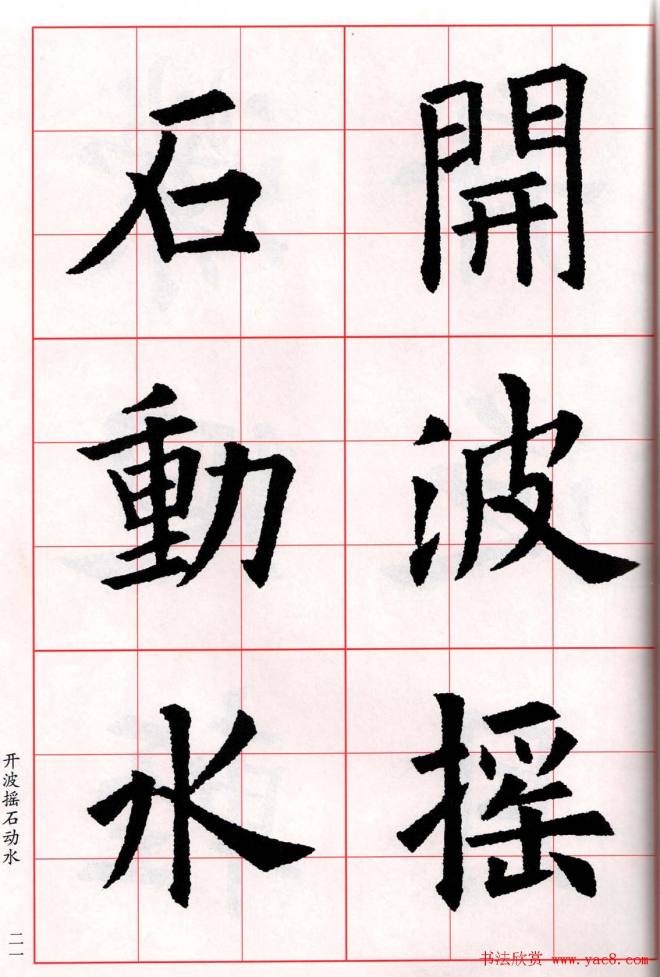 開波搖
石動水
开波摇石动水
二一
书法欣赏 www.yac8.com